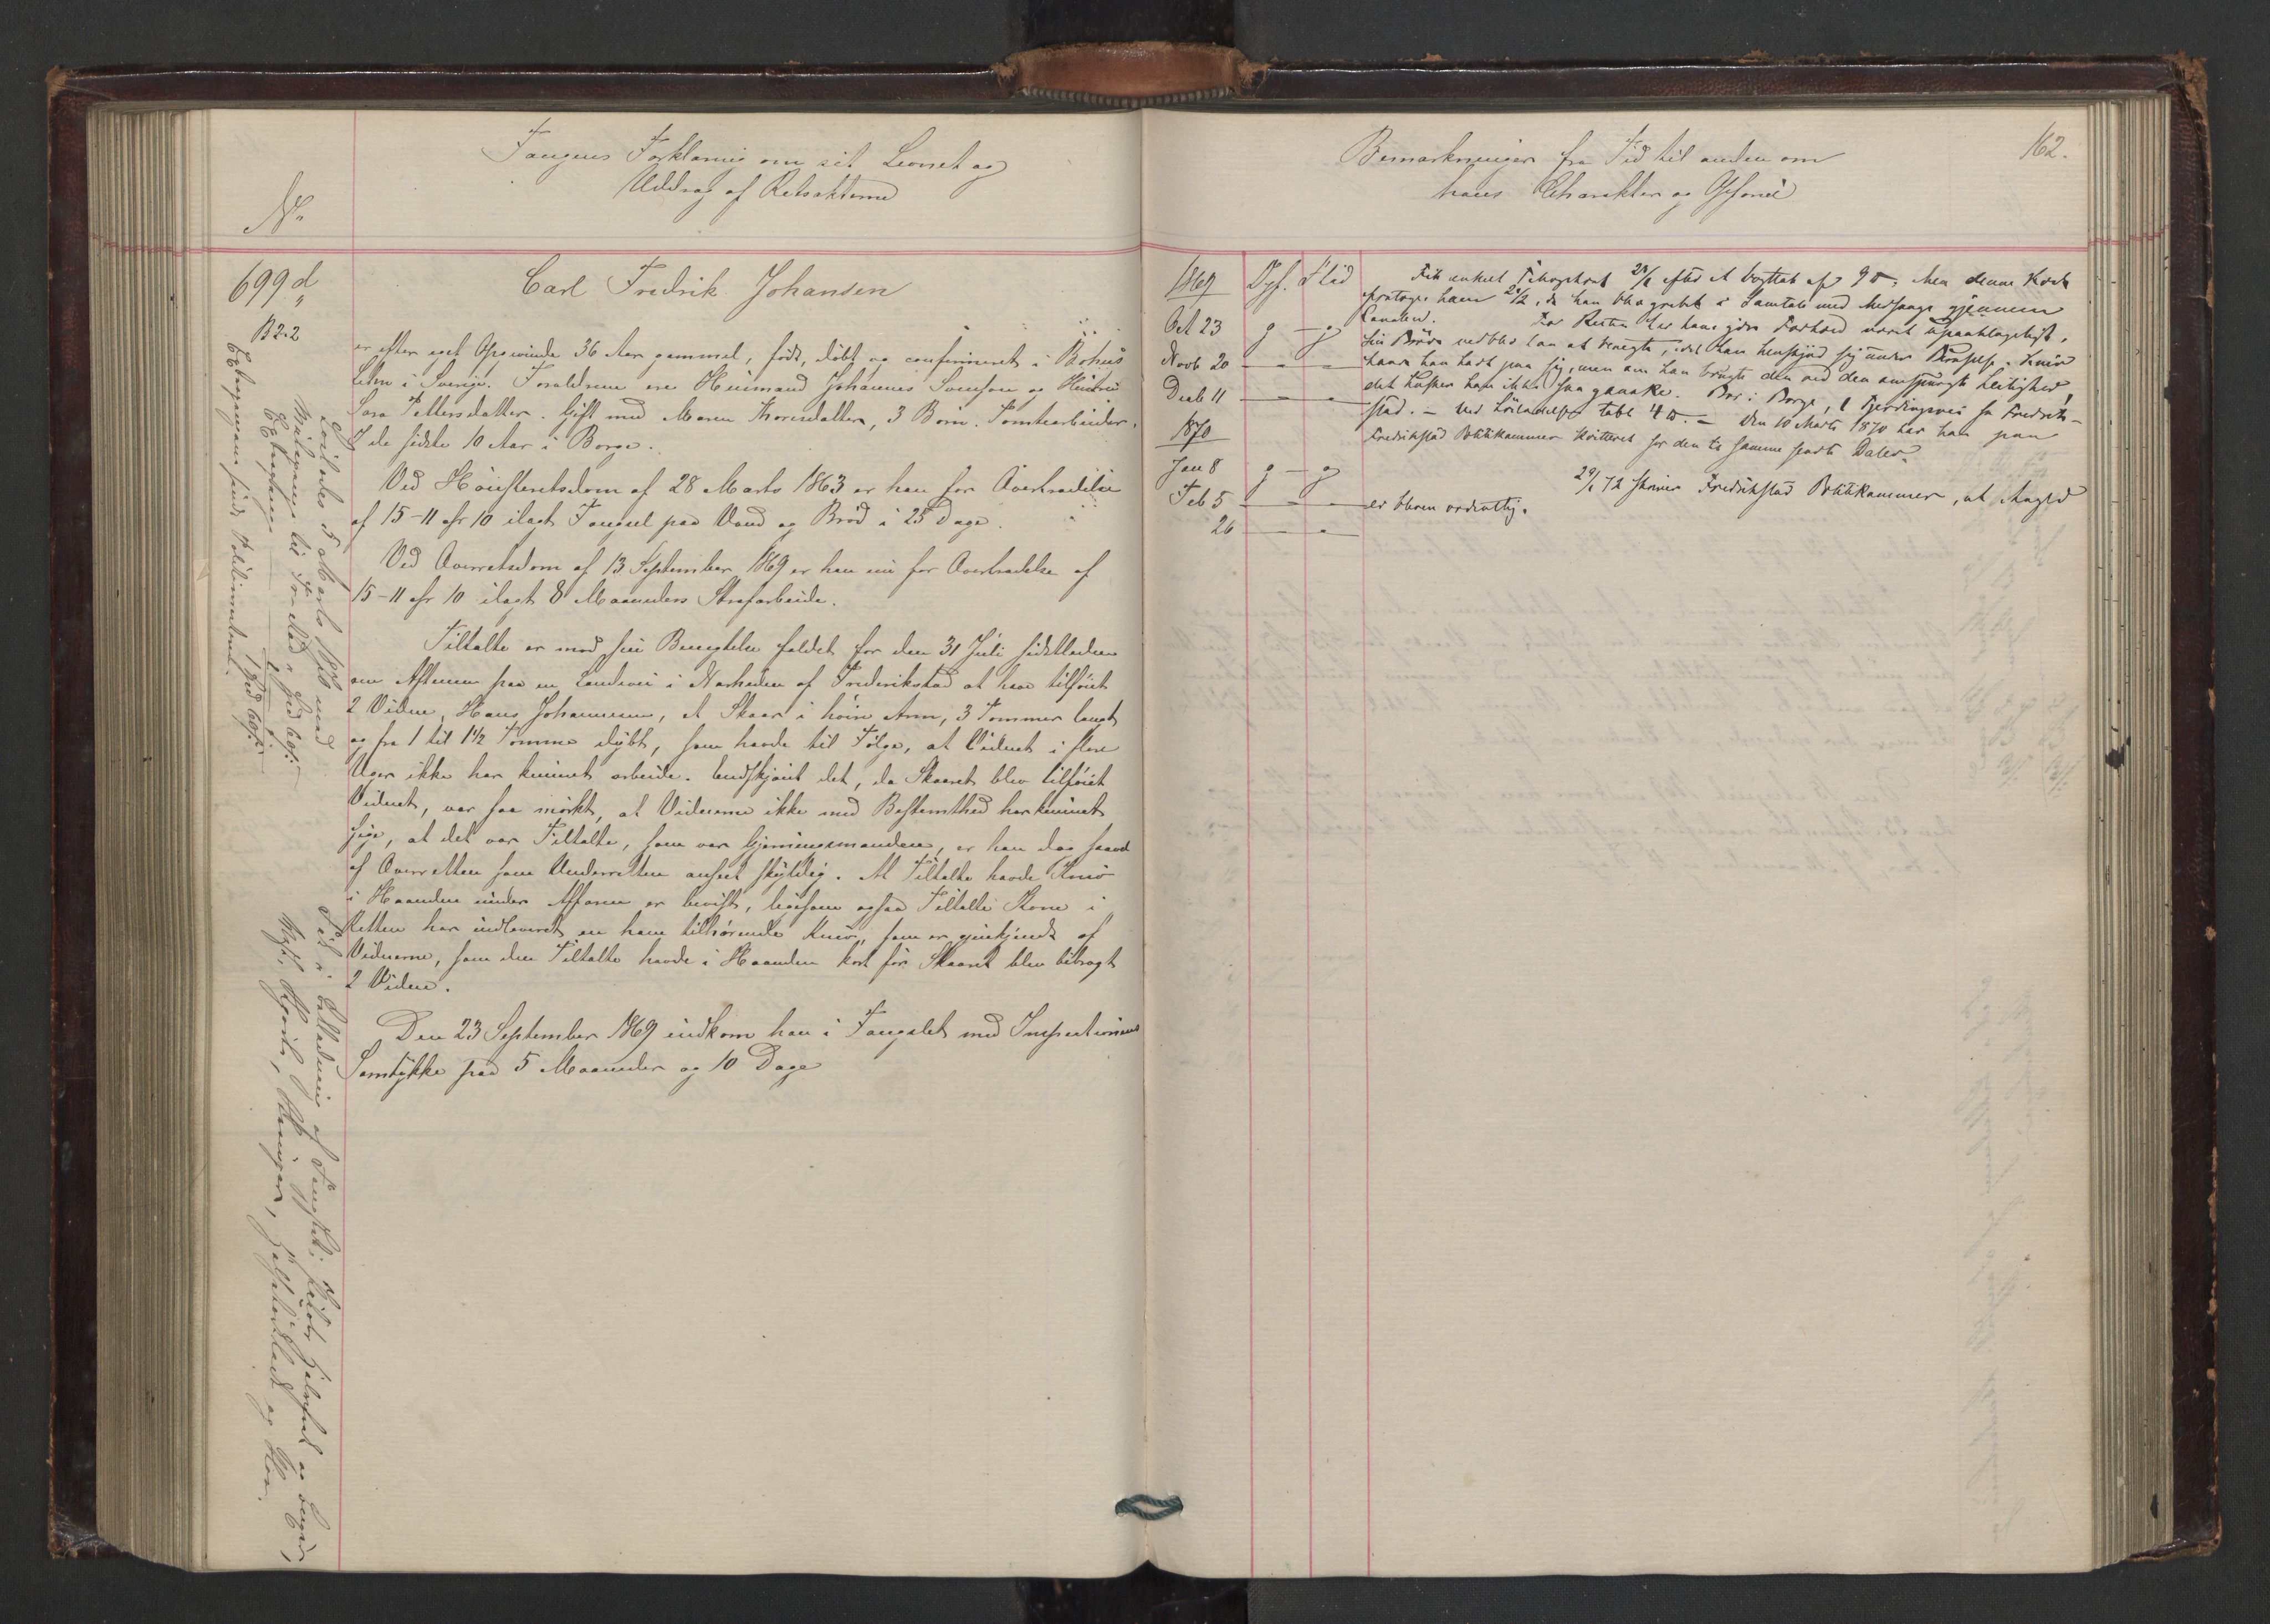 Fangens Forklaring om sit Levnet og
Uddrag af Retsakterne
No
699 d
B 2-2
Carl Fredrik Johansen
er efter eget Opgivende 36 Aar gammel, født, døbt og confirmeret i Bohus
Lehn i Sverige. Forældrene ere Huusmand Johannes Svensen og Hustru
Sara Pettersdatter. Gift med Maren Thorsdatter, 3 Børn. Tomtearbeider.
I de sidste 10 Aar i Borge.
Ved Høiesteretsdom af 28 Marts 1863 er han for Overtrædelse
af 15-11 cfr 10 ilagt Fængsel paa Vand og Brød i 25 Dage.
Ved Overretsdom af 13 September 1869 er han nu for Overtrædelse af
15-11 cfr 10 ilagt 8 Maaneders Strafarbeide.
Tiltalte er mod sin Benegtelse fældet for den 31 Juli sidstleden
om Aftenen paa en Landevei i Nærheden af Frederikstad at have tilføiet
2 Vidne, Hans Johannesen, et Skaar i høire Arm, 3 Tommer langt
og fra 1 til 1½ Tomme dybt, som havde til Følge, at Vidnet i flere
Uger ikke har kunnet arbeide. Endskjønt det, da Skaaret blev tilføiet
Vidnet, var saa mørkt, at Vidnerne ikke med Bestemthed har kunnet
sige, at det var Tiltalte, som var Gjerningsmanden, er han dog saavel
af Overretten som Underretten anseet skyldig. At Tiltalte havde Kniv
i Haanden under Affæren er bevist, ligesom ogsaa Tiltaltes Kone i
Retten har indleveret en ham tilhørende Kniv, som er gjenkjendt af
Vidnerne, som den Tiltalte havde i Haanden kort før Skaaret blev bibragt
2 Vidne.
Den 23 September 1869 indkom han i Fængslet med Inspectionens
Samtykke paa 5 Maaneder og 10 Dage
Løslades 5 Marts 1870 med
Reisepenge til Fr.stad 2 Spd 60 s
sendt Politimesteren
Tøi i
Vest, Skjorte,
162.
Bemærkninger fra Tid til anden om
hans Charakter og Opførsel
1869 Opf. Flid
Oct 23 g - g
Novb 20 - - -
Decb 11 - - -
1870
Jan 8 g - g
Feb 5 - - -
26 - -
Fik enkelt efter et Vægttab af 9 ℔, Men denne Kost
fratoges ham da han blev grebet i Samtale med Medfange gjennem
Kanalen. For Resten har hans ydre Forhold været upaaklageligt.
Sin Brøde vedblev han at benegte, idet han henskjød sig under Kniv
havde han havt paa sig, men om han brugte den ved den omspurgte Leilighed,
det husker han ikke saa ganske. Bor i Borge, 1 Fjerdingvei fra Fredrik-
stad. - Ved Løsladelsen tabt 4 ℔. - Den 10 Marts 1870 har han paa
Fredrikstad Politikammer kvitteret for den til samme sendte Daler.
72 skriver Fredrikstad Politikammer, at
er bleven ordentlig.